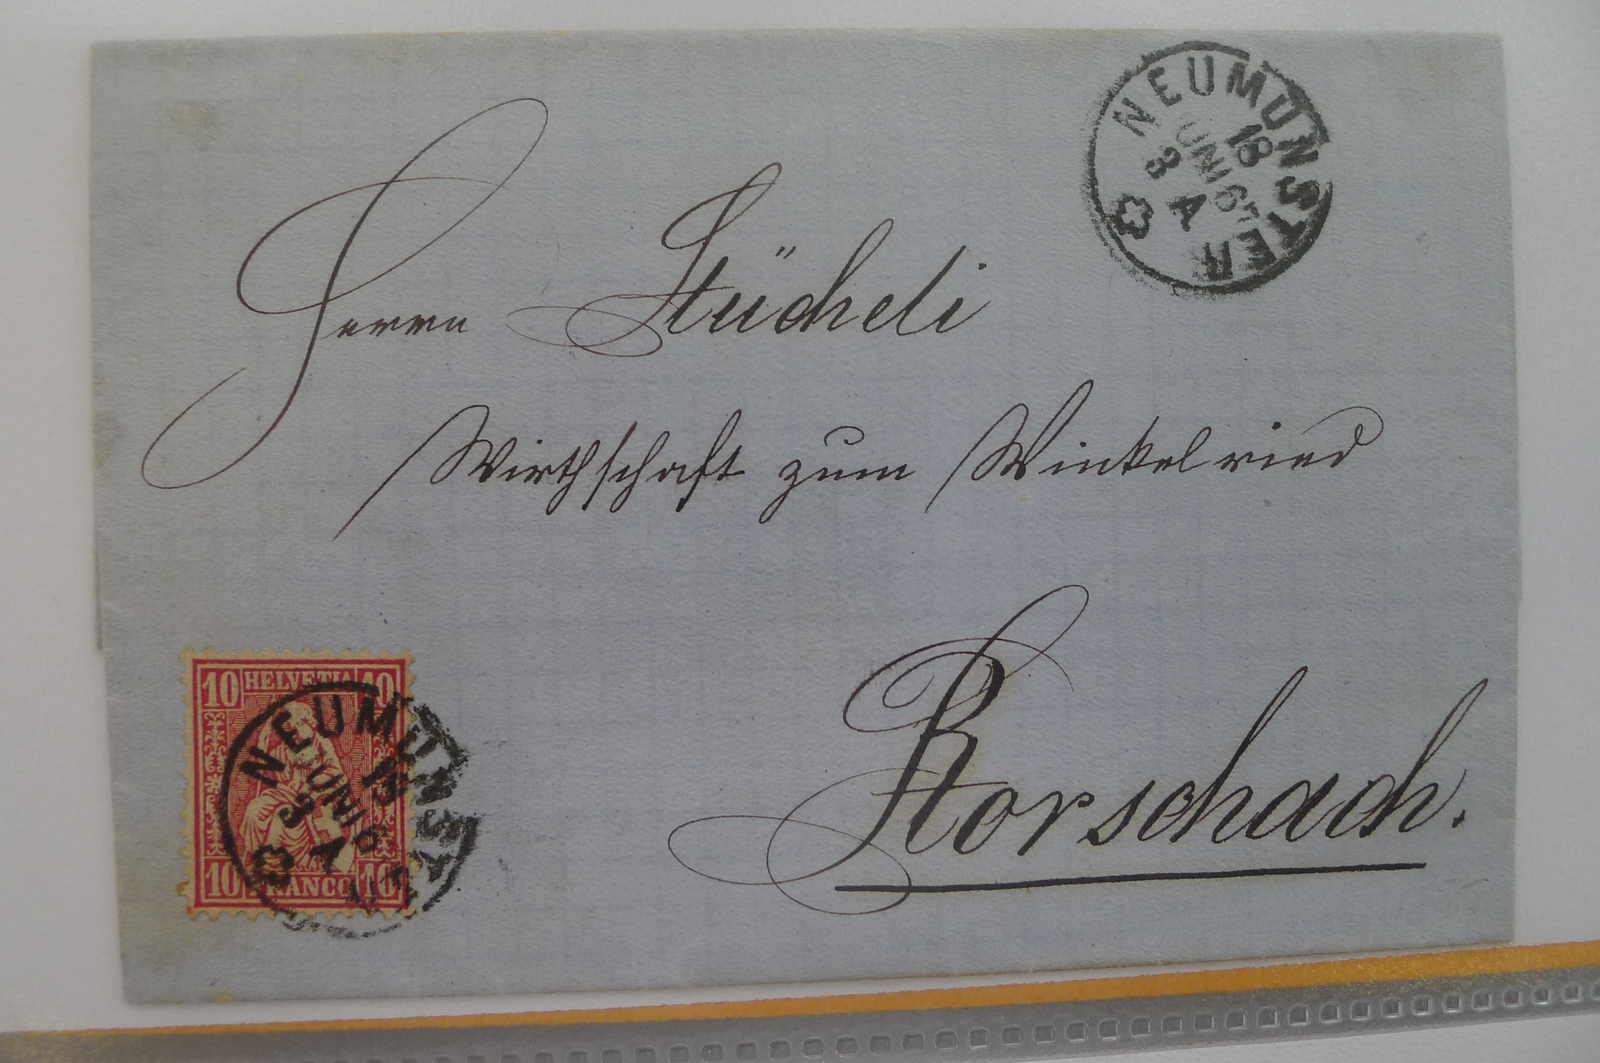 NEUMÜNSTER
18
JUNI 67
3 A
Herrn Stücheli
Wirthschaft zum Winkelried
Rorschach.
10 HELVETIA 10
10 FRANCO 10
NEUMÜNSTER
18
JUNI 6
3 A